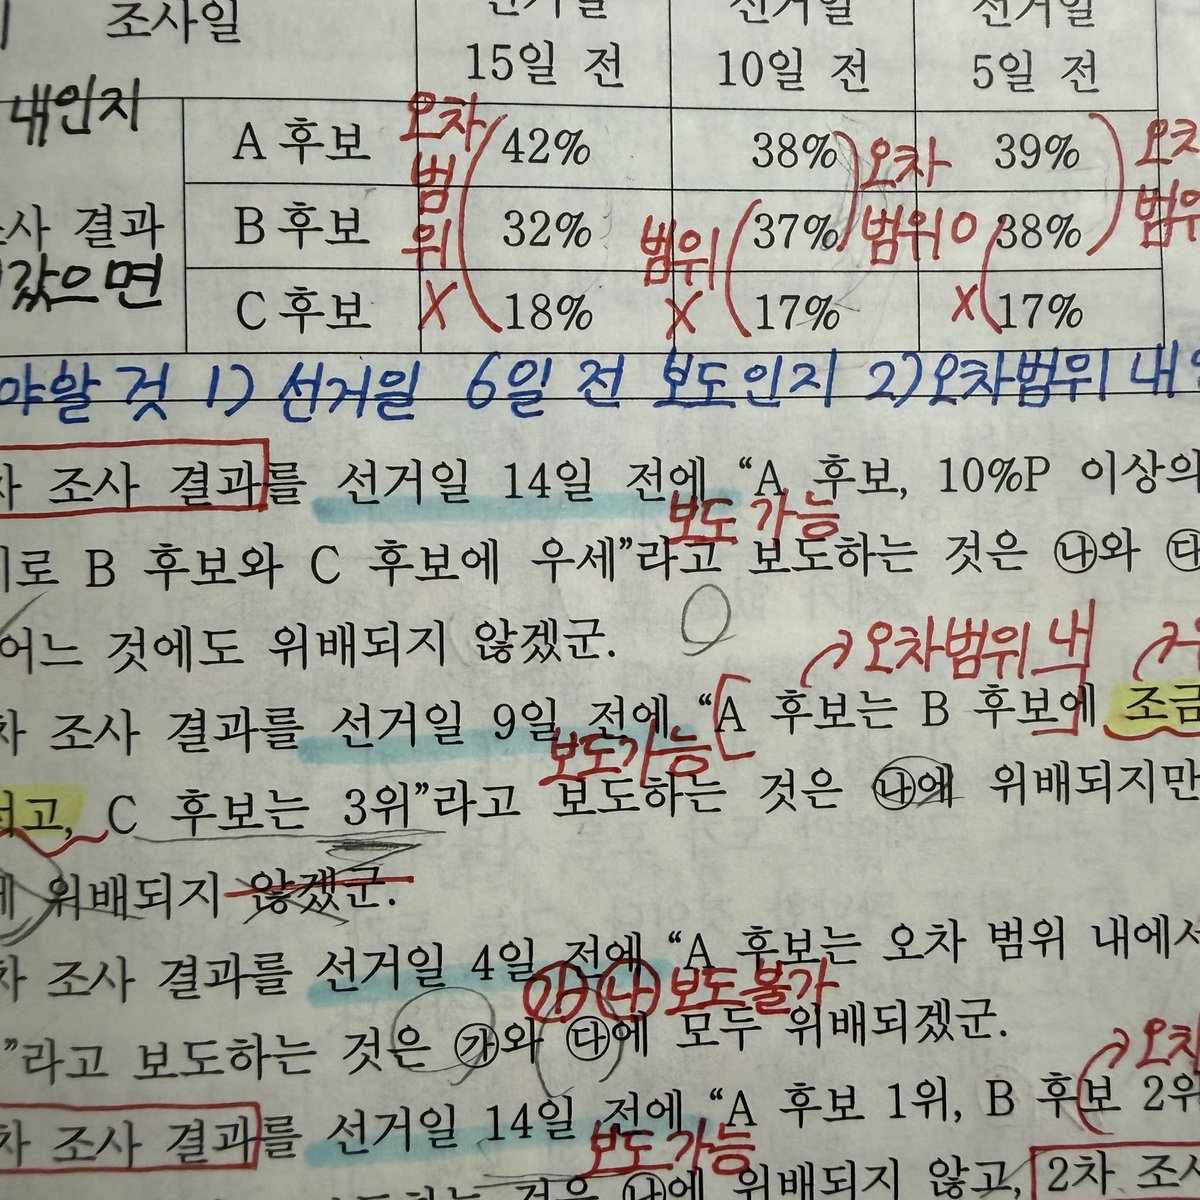 조사일 선거일 선거일 선거일
15일 전 10일 전 5일 전
내인지
A 후보 42% 38% 39%
오차 범위 X
오차 범위 O
오차
사 결과 B 후보 32% 37% 38%
범위 X
X
갔으면
C 후보 18% 17% 17%
야할 것 1) 선거일 6일 전 보도인지 2) 오차범위 내
차 조사 결과를 선거일 14일 전에 “A 후보, 10%P 이상의
보도 가능
로 B 후보와 C 후보에 우세”라고 보도하는 것은 ㉯와 ㉰
어느 것에도 위배되지 않겠군.
→오차범위 내
차 조사 결과를 선거일 9일 전에 “A 후보는 B 후보에 조금
보도가능
고, C 후보는 3위”라고 보도하는 것은 ㉯에 위배되지만
에 위배되지 않겠군.
차 조사 결과를 선거일 4일 전에 “A 후보는 오차 범위 내에서
㉮ ㉯ 보도불가
”라고 보도하는 것은 ㉮와 ㉰에 모두 위배되겠군.
→오차
차 조사 결과를 선거일 14일 전에 “A 후보 1위, B 후보 2위
보도가능
것은 ㉯에 위배되지 않고, 2차 조사